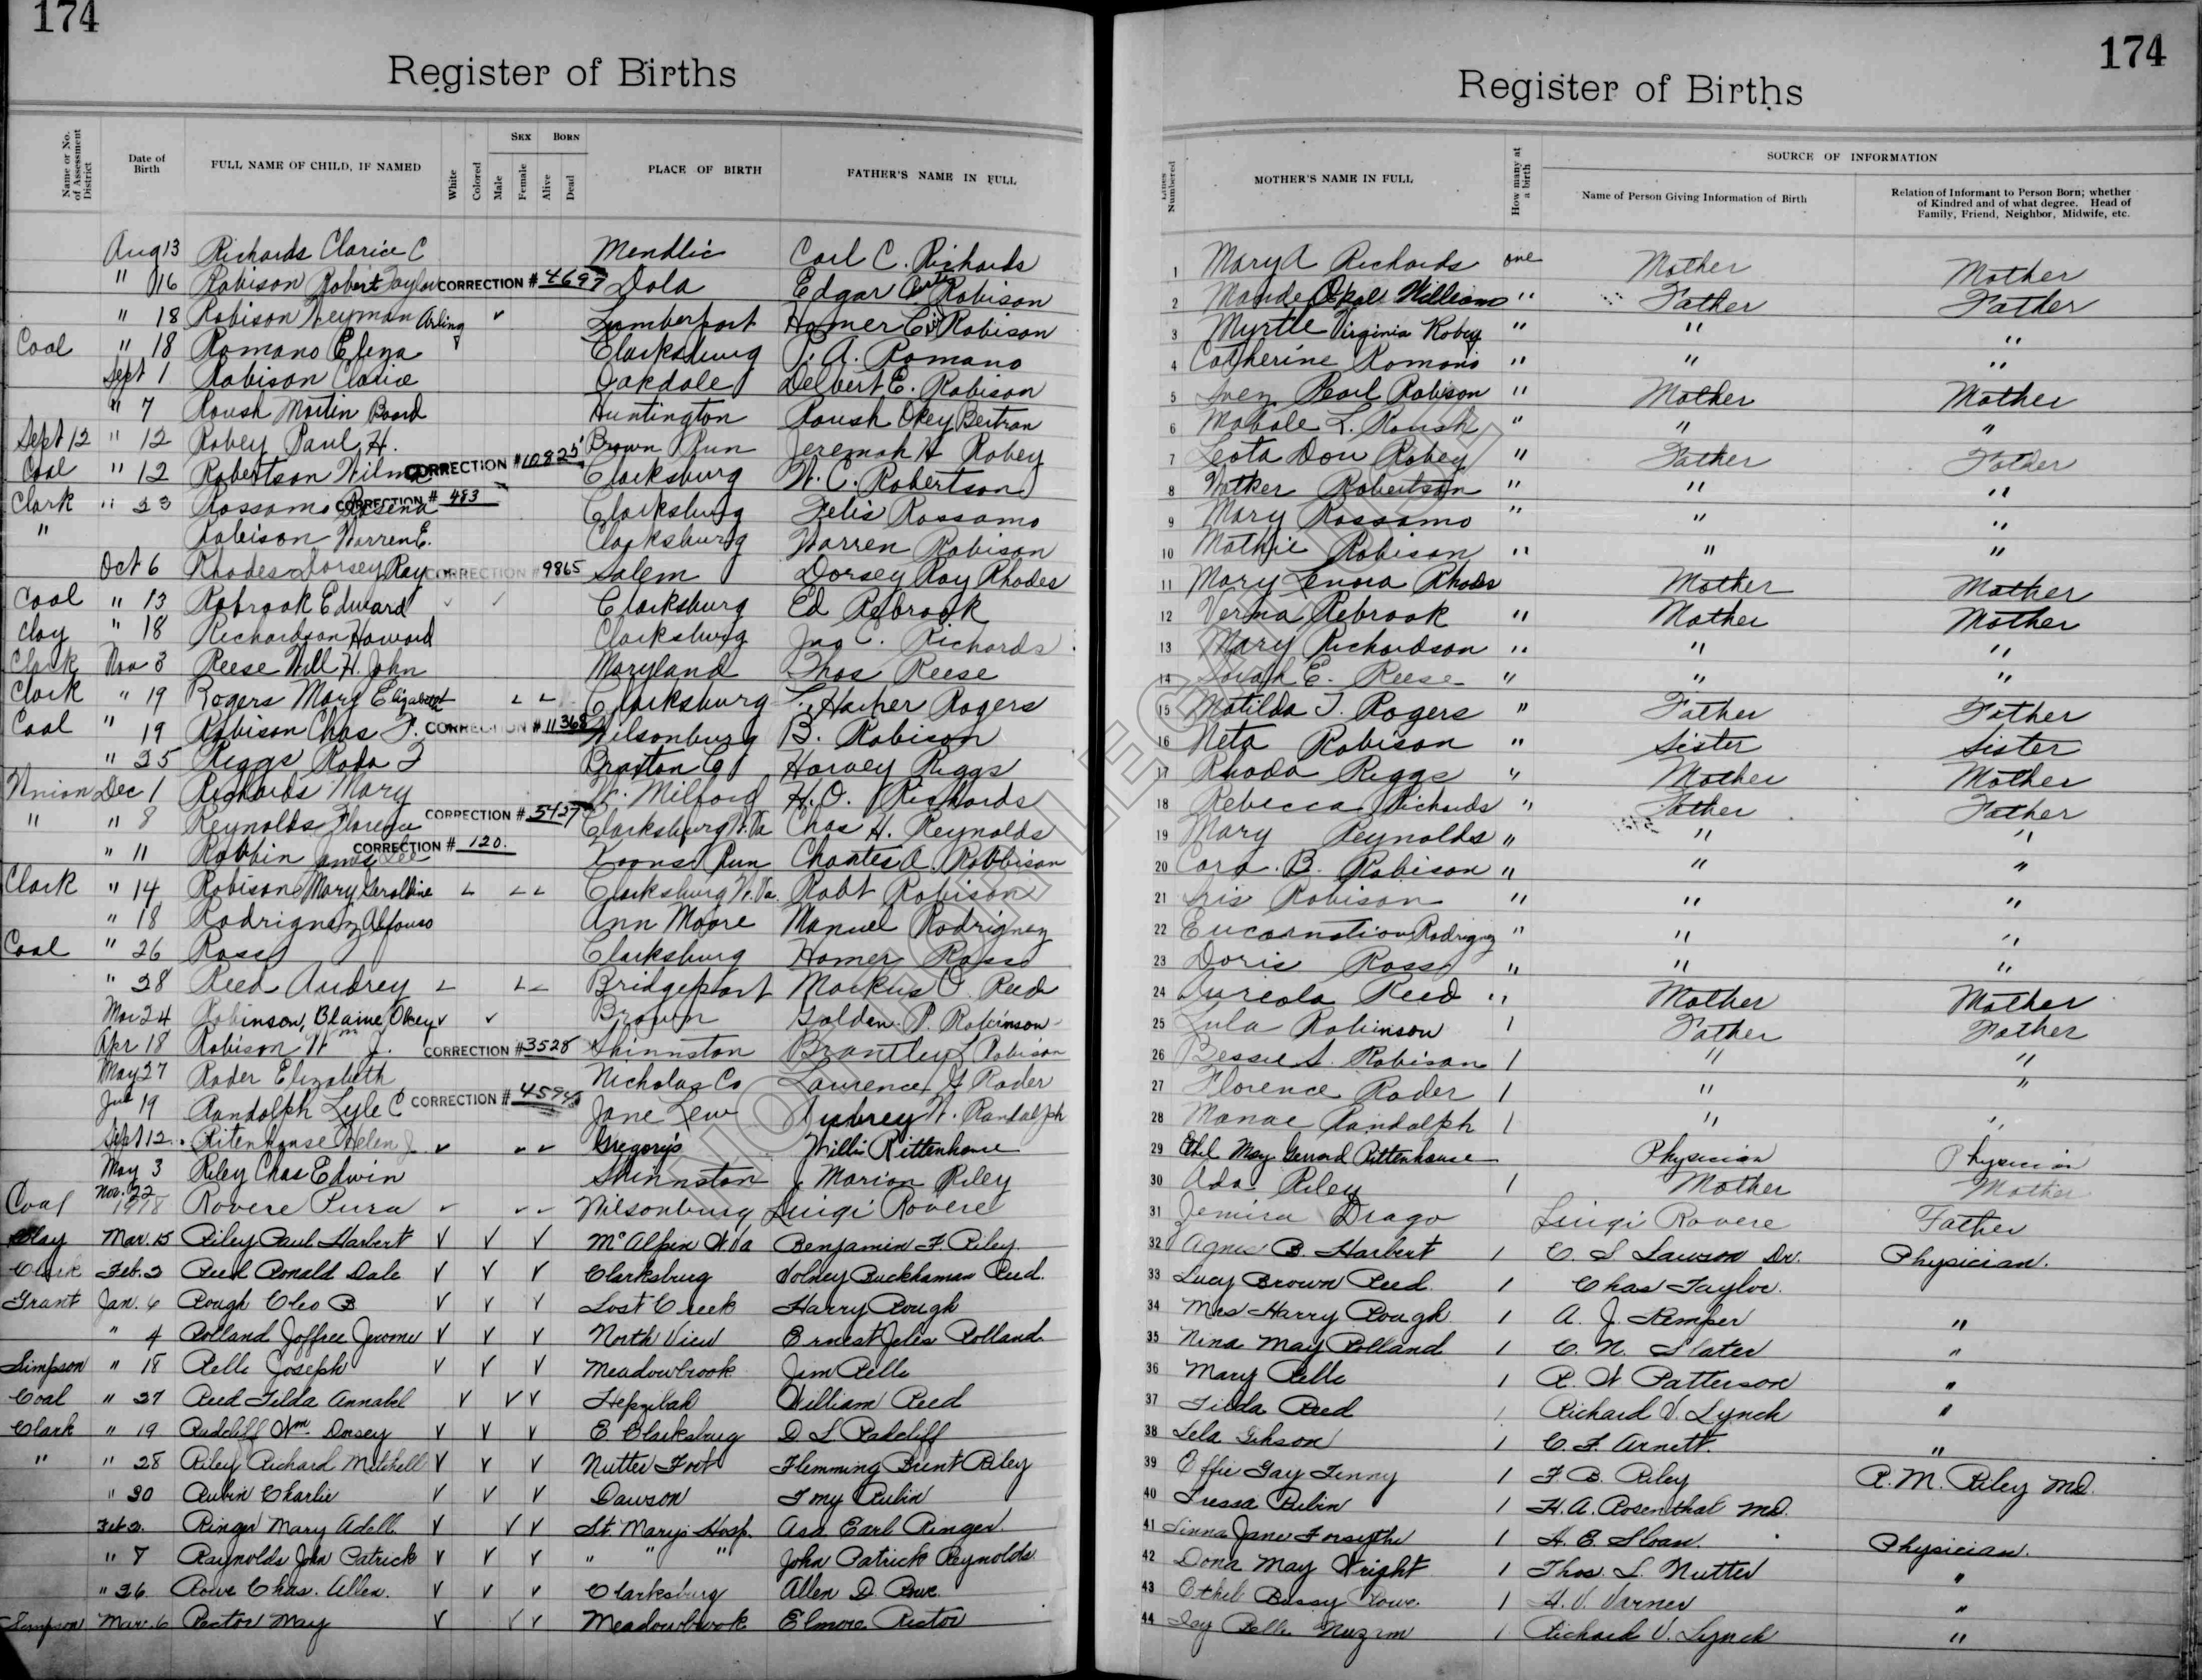 174
Register of Births
Name or No. of Assessment District
Date of Birth
FULL NAME OF CHILD, IF NAMED
White
Colored
SEX
Male
Female
BORN
Alive
Dead
PLACE OF BIRTH
FATHER'S NAME IN FULL
Aug 13 Richards Clarice C Carl C. Richards
" 16 Robison Robert Taylor CORRECTION # 4697 Dola Edgar Robison
" 18 Robison Lumberport Homer Robison
Coal " 18 Romano Clarksburg P. A. Romano
Sept 1 Robison Clarice Oakdale Delbert E. Robison
" 7 Roush Martin Board Huntington Roush Okey Bertran
Sept 12 " 12 Robey Paul H. Brown Run Jeremah H Robey
Coal " 12 Robertson Wilma CORRECTION # 10825 Clarksburg W. C. Robertson
Clark " 23 Rossamo Rosena CORRECTION # 483 Clarksburg Felis Rossamo
" Robison Warren E. Clarksburg Warren Robison
Oct 6 Rhodes Dorsey Ray CORRECTION # 9865 Salem Dorsey Ray Rhodes
Coal " 13 Robrook Edward Clarksburg Ed Rebrook
Clay " 18 Richardson Howard Clarksburg Jno C. Richards
Clark Nov 3 Reese Will H. John Maryland Thos Reese
Clark " 19 Rogers Mary Elizabeth Clarksburg Harper Rogers
Coal " 19 Robison Chas F. CORRECTION # 11368 Wilsonburg B. Robison
" 25 Riggs Roda F Braxton Co Harvey Riggs
Union Dec 1 Richards Mary W. Milford H. O. Richards
" " 8 Reynolds Florence CORRECTION # 5427 Clarksburg W. Va Chas H. Reynolds
" 11 Robbin James Lee CORRECTION # 120. Koons Run Charles A. Robbison
Clark " 14 Robison Mary Geraldine Clarksburg W. Va. Robt Robison
" 18 Rodrignez Alfonso Ann Moore Manuel Rodrignez
Coal " 26 Ross Clarksburg Homer Ross
" 28 Reed Audrey Bridgeport Markus O. Reed
Mar 24 Robinson, Blaine Okey Brown Golden P. Robinson
Apr 18 Robison Wm J. CORRECTION # 3528 Shinnston Brantley L Robison
May 27 Rader Elizabeth Nicholas Co Laurence Rader
19 Randolph Lyle C CORRECTION # Jane Lew Aubrey W. Randolph
Sept 12. Ritenhouse Helen J Gregory's Willis Rittenhouse
May 3 Riley Chas Edwin Shinnston J Marion Riley
Coal Nov. 22 1918 Rovere Pura Wilsonburg Luigi Rovere
Clay Mar. 15 Riley Paul Harbert McAlpin W Va Benjamin F. Riley
Clark Feb. 2 Reed Ronald Dale Clarksburg Volney Buckhaman Reed.
Grant Jan. 6 Rough Cleo B Lost Creek Harry Rough
" 4 Rolland Joffree Jerome North View Ernest Jules Rolland
Simpson " 18 Relle Joseph Meadowbrook Jim Relle
Coal " 27 Reed Tilda Annabel Hepzibah William Reed
Clark " 19 Radcliff Wm. Dorsey E. Clarksburg D L Radcliff
" " 28 Riley Richard Mitchell Nutter Fort Flemming Brent Riley
" 30 Rubin Charlie Dawson Tony Rubin
Feb 2. Ringer Mary Adell St. Mary's Hosp. Asa Earl Ringer.
" 8 Raynolds John Patrick " " " John Patrick Reynolds
" 26 Rowe Chas. Allen. Clarksburg Allen D. Rowe
Simpson Mar. 6 Rector May Meadowbrook Elmore Rector
174
Register of Births
Lines Numbered
MOTHER'S NAME IN FULL
How many at a birth
SOURCE OF INFORMATION
Name of Person Giving Information of Birth
Relation of Informant to Person Born; whether of Kindred and of what degree. Head of Family, Friend, Neighbor, Midwife, etc.
1 Mary A Richards one Mother Mother
2 Maude Opal Williams " Father Father
3 Myrtle Virginia Robey " " "
4 Catherine Romano " " "
5 Inez Pearl Robison " Mother Mother
6 Mabale L. Roush " " "
7 Leota Dou Robey " Father Father
8 Robertson " " "
9 Mary Rossamo " " "
10 Mathie Robison " " "
11 Mary Lenora Rhodes Mother Mother
12 Verma Rebrook " Mother Mother
13 Mary Richardson " " "
14 Sarah E. Reese " " "
15 Matilda J. Rogers " Father Father
16 Neta Robison " Sister Sister
17 Rhoda Riggs " Mother Mother
18 Rebecca Richards " Father Father
19 Mary Reynolds " " "
20 Cora B. Robison " " "
21 Iris Robison " " "
22 Encarnation Rodrignez " " "
23 Doris Ross " " "
24 Aureola Reed " Mother Mother
25 Lula Robinson 1 Father Father
26 Bessie S. Robison 1 " "
27 Florence Rader 1 " "
28 Manae Randolph 1 " "
29 Ethel May Gerrard Rittenhouse Physician Physician
30 Ada Riley 1 Mother Mother
31 Jemira Drago Luigi Rovere Father
32 Agnes B. Harbert 1 C. S Lawson Dr. Physician.
33 Lucy Brown Reed 1 Chas Taylor.
34 Mrs Harry Rough 1 A. J. Kemper "
35 Nina May Rolland 1 C. N. Slater "
36 Mary Relle 1 R. W Patterson "
37 Tilda Reed 1 Richard V. Lynch "
38 Lela Gibson 1 C. F. Arnett. "
39 Effie Gay Tenny 1 F. B. Riley R. M. Riley MD.
40 Tressa Rubin 1 H. A. Rosenthal MD.
41 Linna Jane Forsythe 1 H. E. Sloan. Physician.
42 Dona May Wright 1 Thos. L. Nutter "
43 Ethel Bessy Rowe. 1 H. V. Varner "
44 Icy Belle Nuzum 1 Richard V. Lynch "